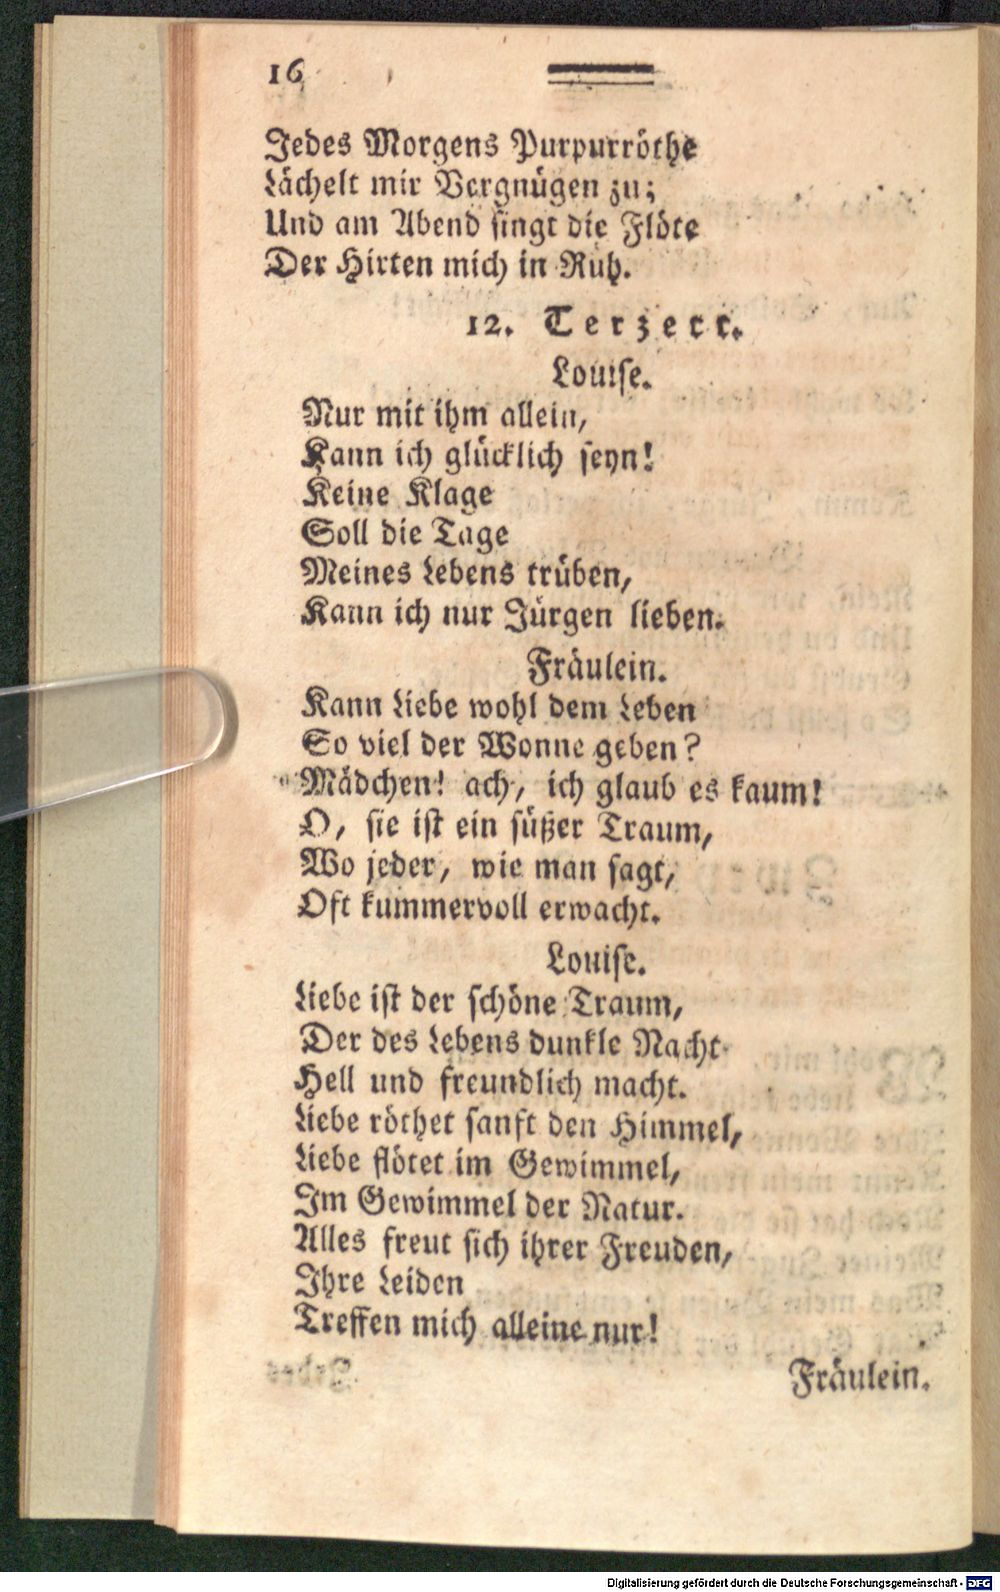 16
Jedes Morgens Purpurröthe
Lächelt mir Vergnügen zu;
Und am Abend singt die Flöte
Der Hirten mich in Ruh.
12. Terzett.
Louise.
Nur mit ihm allein,
Kann ich glücklich seyn!
Keine Klage
Soll die Tage
Meines Lebens trüben,
Kann ich nur Jürgen lieben.
Fräulein.
Kann Liebe wohl dem Leben
So viel der Wonne geben?
Mädchen! ach, ich glaub es kaum!
O, sie ist ein süßer Traum,
Wo jeder, wie man sagt,
Oft kummervoll erwacht.
Louise.
Liebe ist der schöne Traum,
Der des Lebens dunkle Nacht
Hell und freundlich macht.
Liebe röthet sanft den Himmel,
Liebe flötet im Gewimmel,
Im Gewimmel der Natur.
Alles freut sich ihrer Freuden,
Ihre Leiden
Treffen mich alleine nur!
Fräulein.
Digitalisierung gefördert durch die Deutsche Forschungsgemeinschaft - DFG